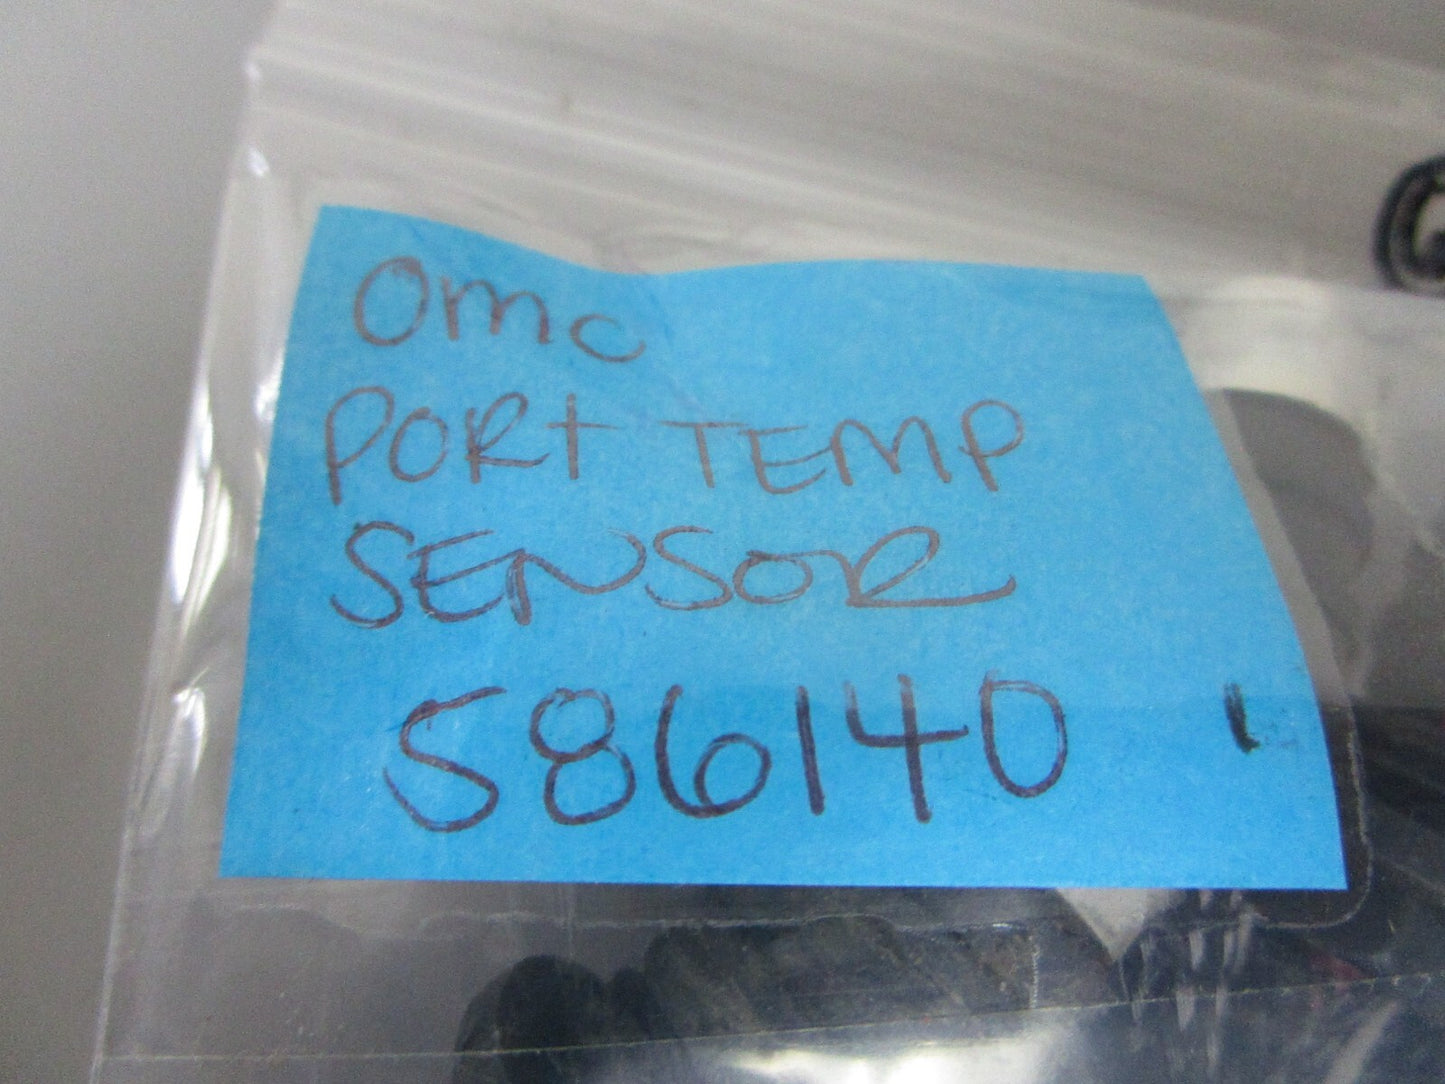 Omc
PORt TEMP
SENSOR
586140